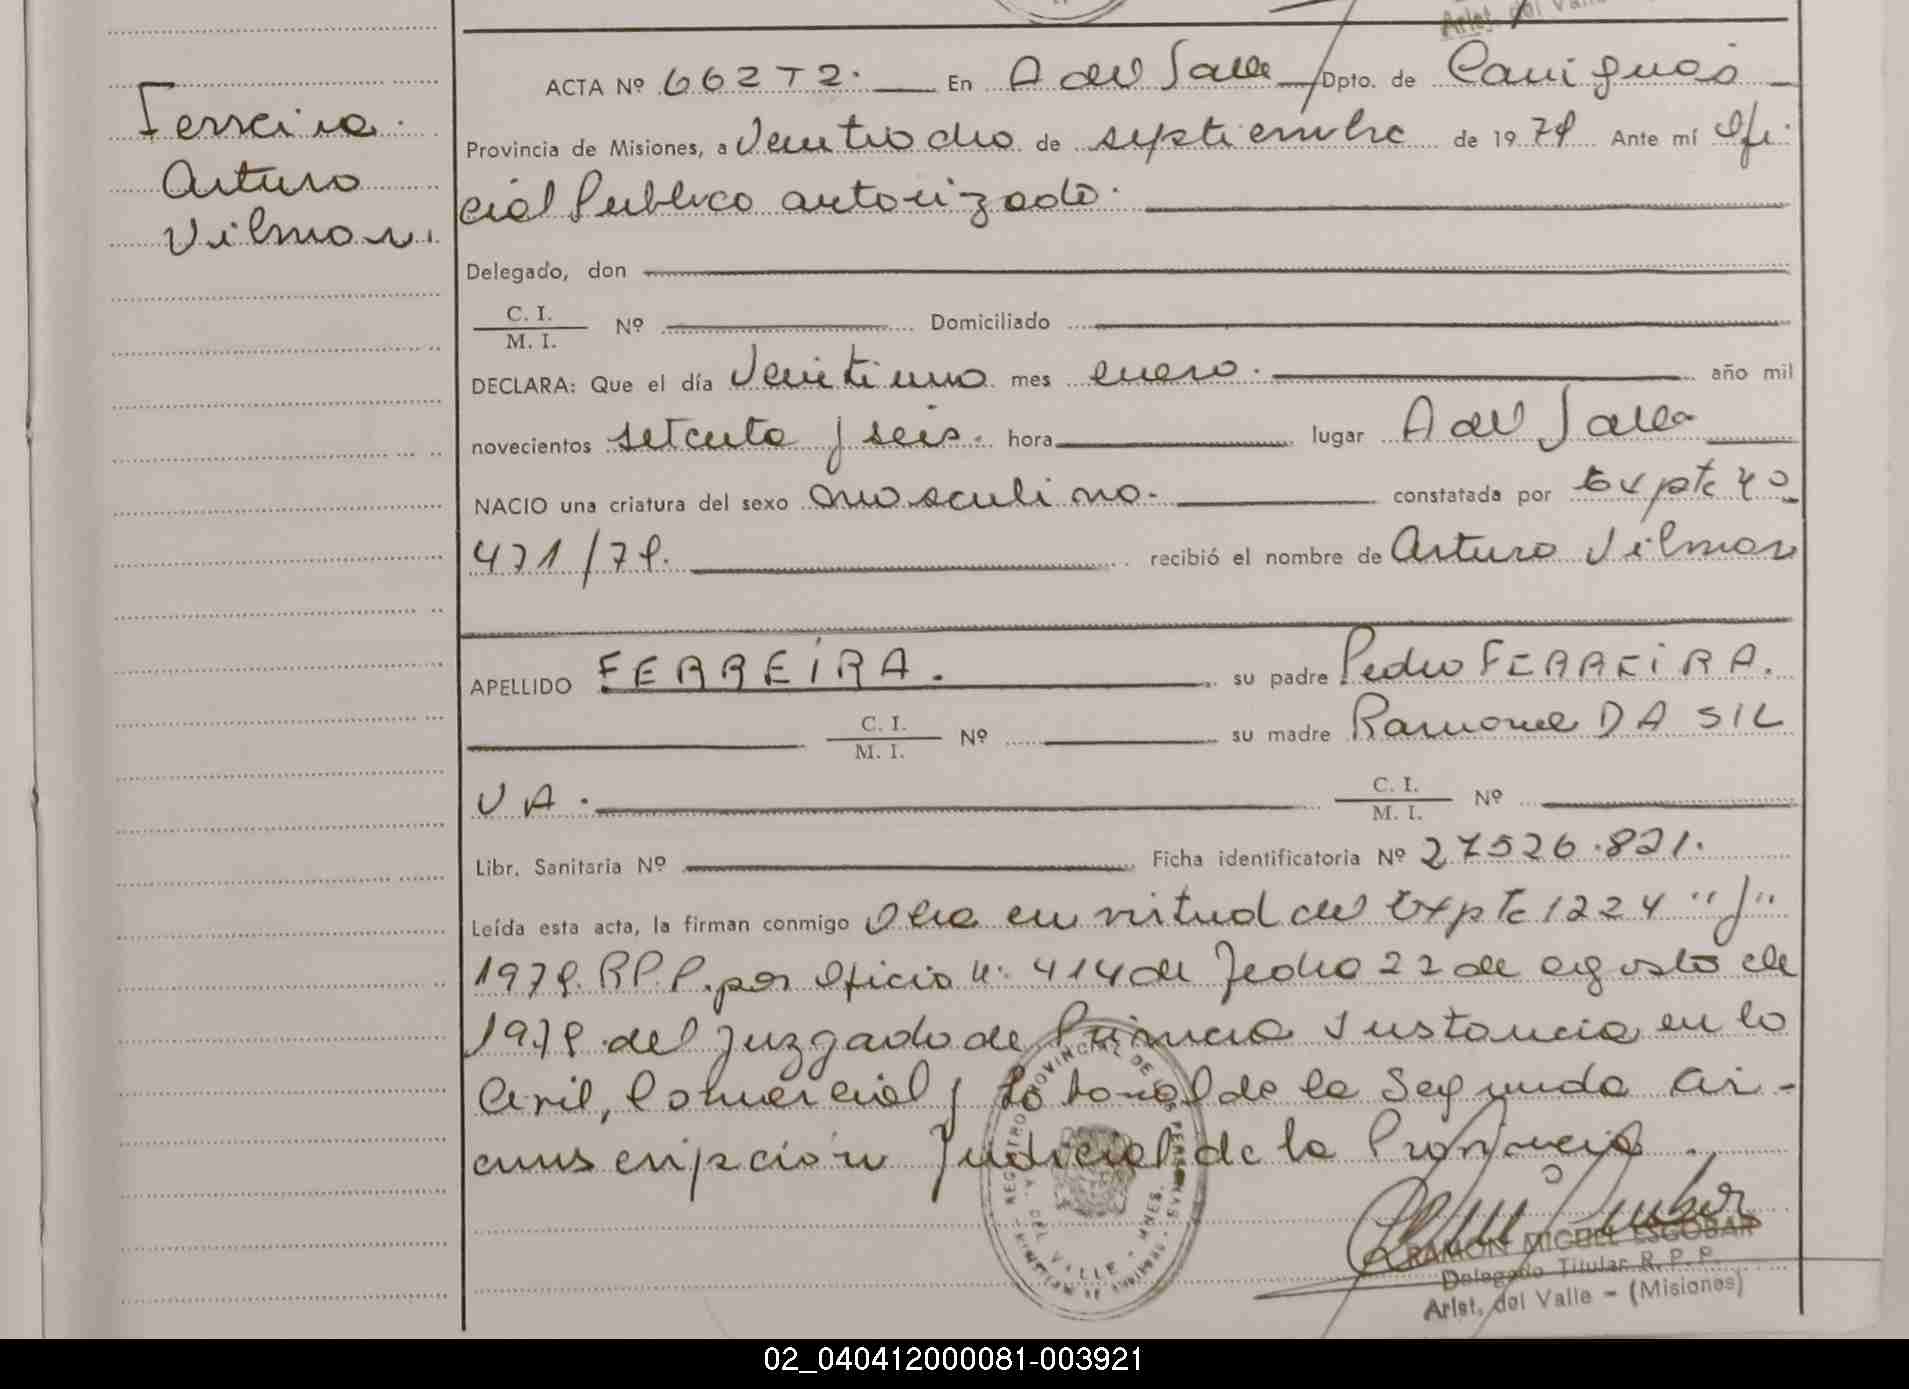 Arist. del Valle
Ferreira.
Arturo
Vilmar.
ACTA Nº 662 T 2. En A del Valle Dpto. de Cainguás
Provincia de Misiones, a Veintiocho de septiembre de 1979 Ante mí Ofi
cial Publico autorizado.
Delegado, don
C. I.
M. I. Nº Domiciliado
DECLARA: Que el día Veintiuno mes enero. año mil
novecientos setenta y seis. hora lugar A del Valle
NACIO una criatura del sexo masculino. constatada por Expte nº
471/79. recibió el nombre de Arturo Vilmar
APELLIDO FERREIRA. su padre Pedro FERREIRA.
C. I.
M. I. Nº su madre Ramona DA SIL
VA. C. I.
M. I. Nº
Libr. Sanitaria Nº Ficha identificatoria Nº 27526.821.
Leída esta acta, la firman conmigo en virtud del Expte 1224 "J"
1979. R.P.P. por oficio nº 414 de fecha 22 de agosto de
1979 del Juzgado de Primera Instancia en lo
Civil, Comercial y Laboral de la Segunda Cir-
cunscripción Judicial de la Provincia.
REGISTRO PROVINCIAL DE LAS PERSONAS
A. DEL VALLE - MNES.
RAMON MIGUEL ESCOBAR
Delegado Titular R. P. P.
Arist. del Valle - (Misiones)
02_040412000081-003921